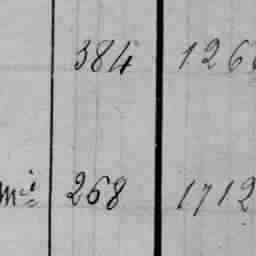 384 126
mie 268 1712